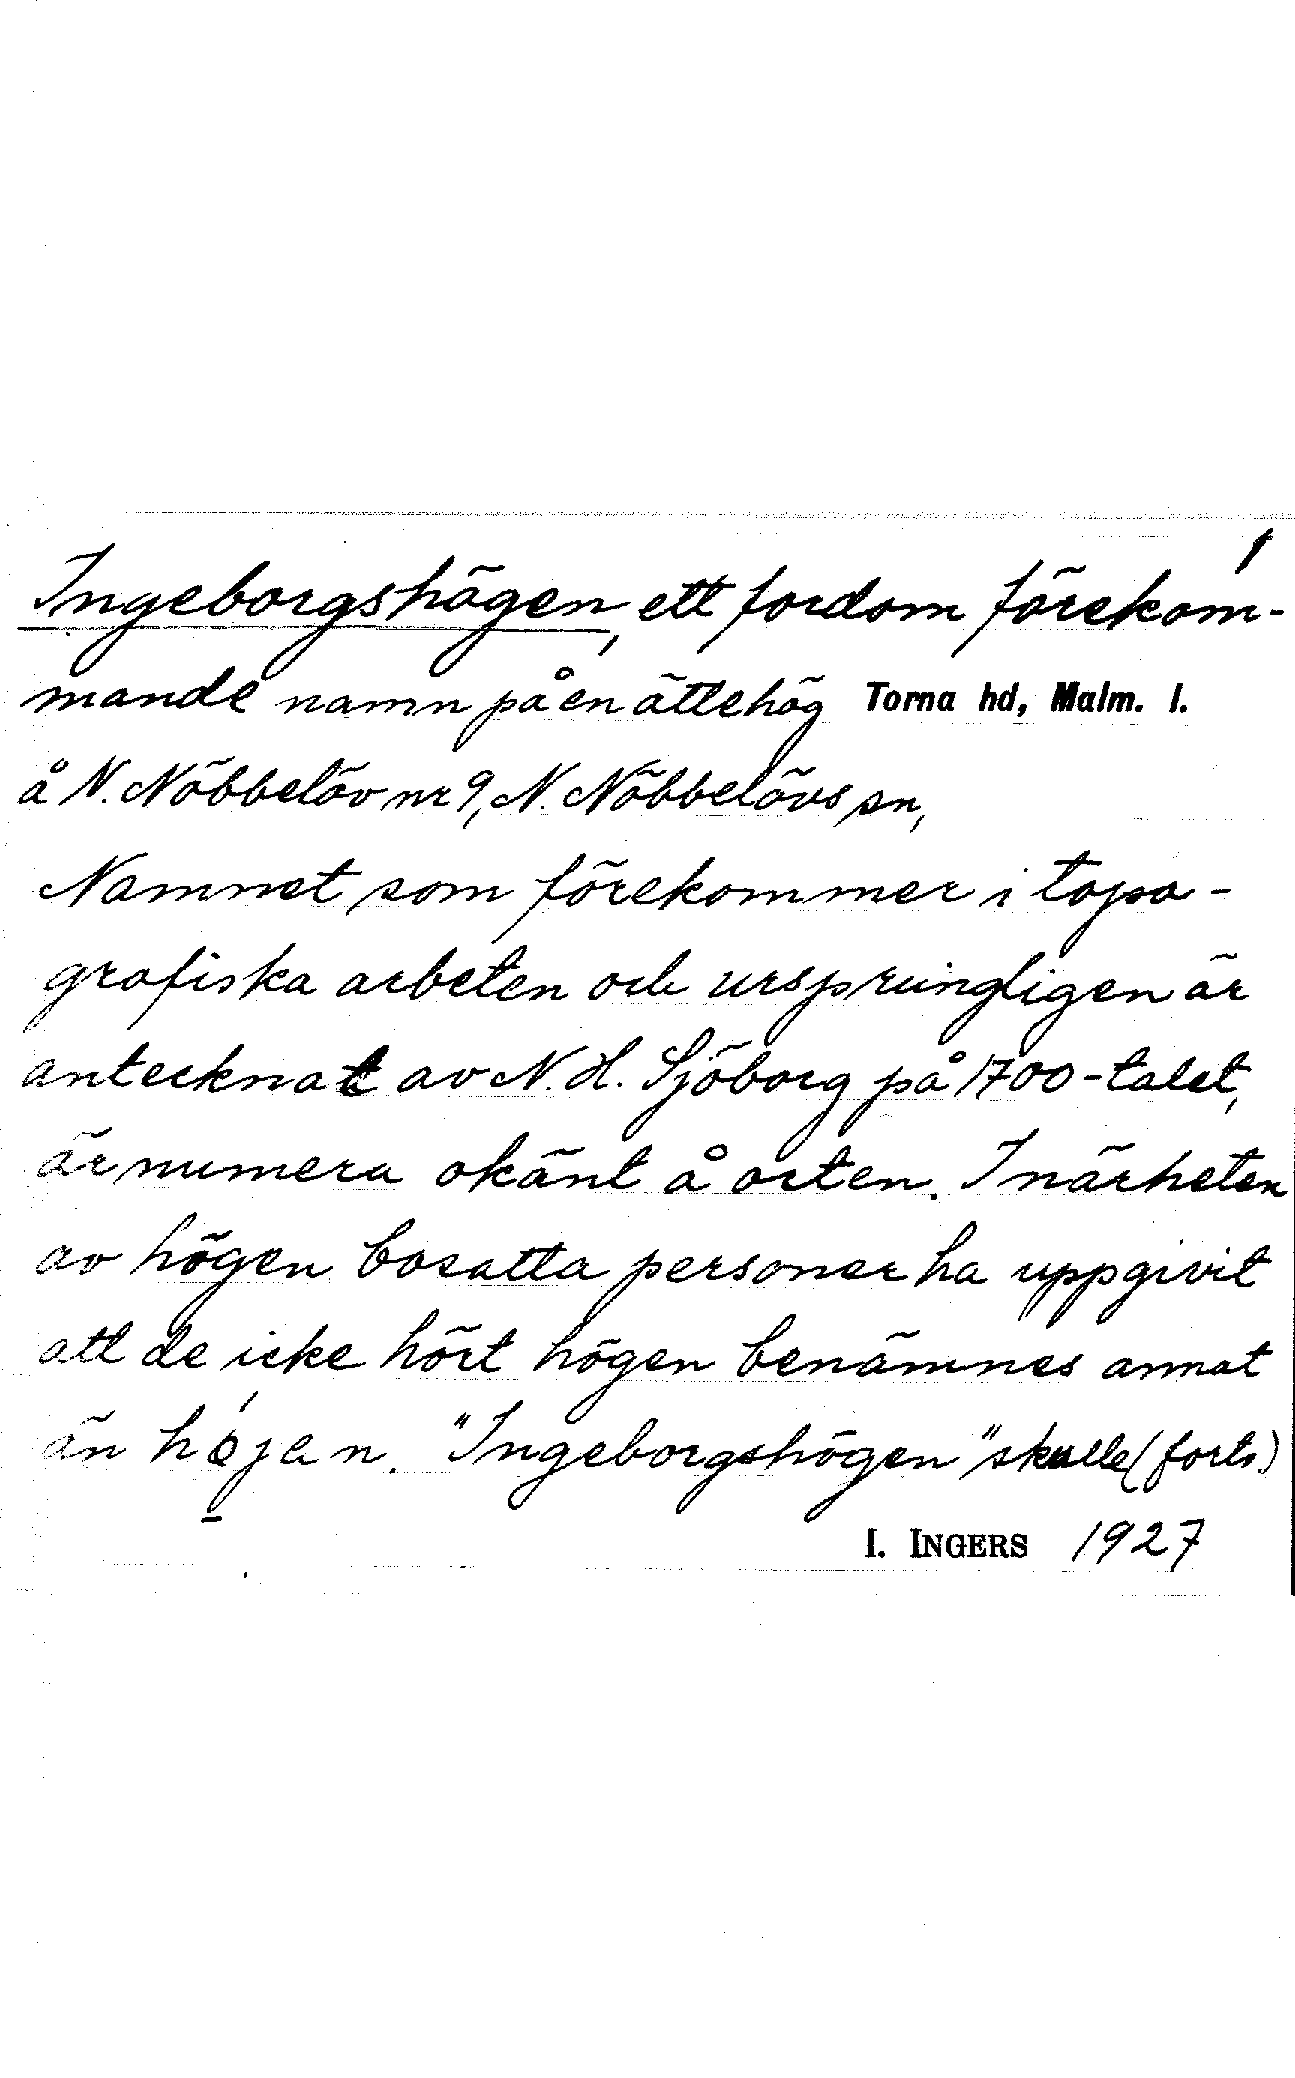 1
Ingeborgshögen, ett fordom förekom-
mande namn på en ättehög Torna hd, Malm. l.
å N. Nöbbelöv nr 9, N. Nöbbelövs sn,
Namnet som förekommer i topo-
grafiska arbeten och ursprungligen är
antecknat av N. H. Sjöborg på 1700-talet,
är numera okänt å orten. I närheten
av högen bosatta personer ha uppgivit
att de icke hört högen benämnes annat
än
"Ingeborgshögen" skulle (forts.)
I. INGERS 1927